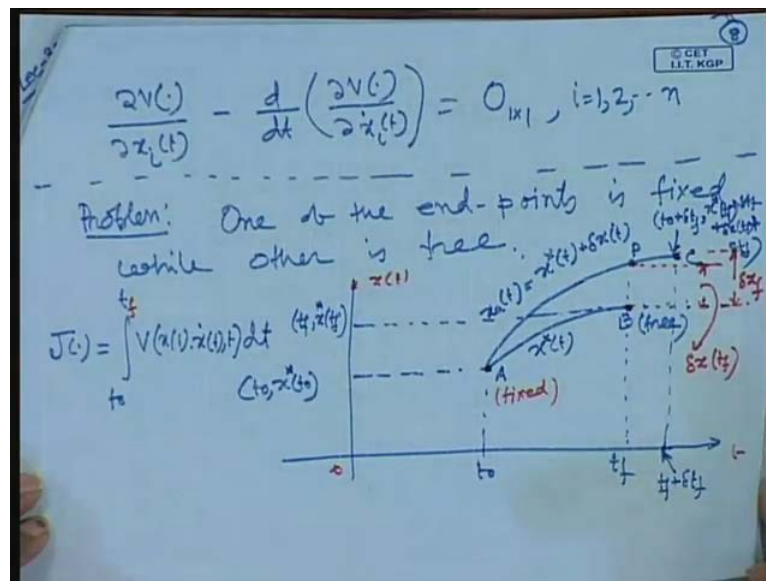 8
© CET
I.I.T. KGP
∂V(·)/∂x_i(t) - d/dt (∂V(·)/∂ẋ_i(t)) = 0_{1×1}, i=1,2,-- n
Problem: One of the end-points is fixed
while other is free.
x(t)
J(·) = ∫_{t0}^{tf} V(x(t), ẋ(t), t) dt
(tf, x*(tf))
(t0, x*(t0))
x_a(t) = x*(t) + δx(t)
x*(t)
P
C
δx_f
A
(fixed)
B (free)
δx(tf)
0
t0
tf
tf+δtf
t